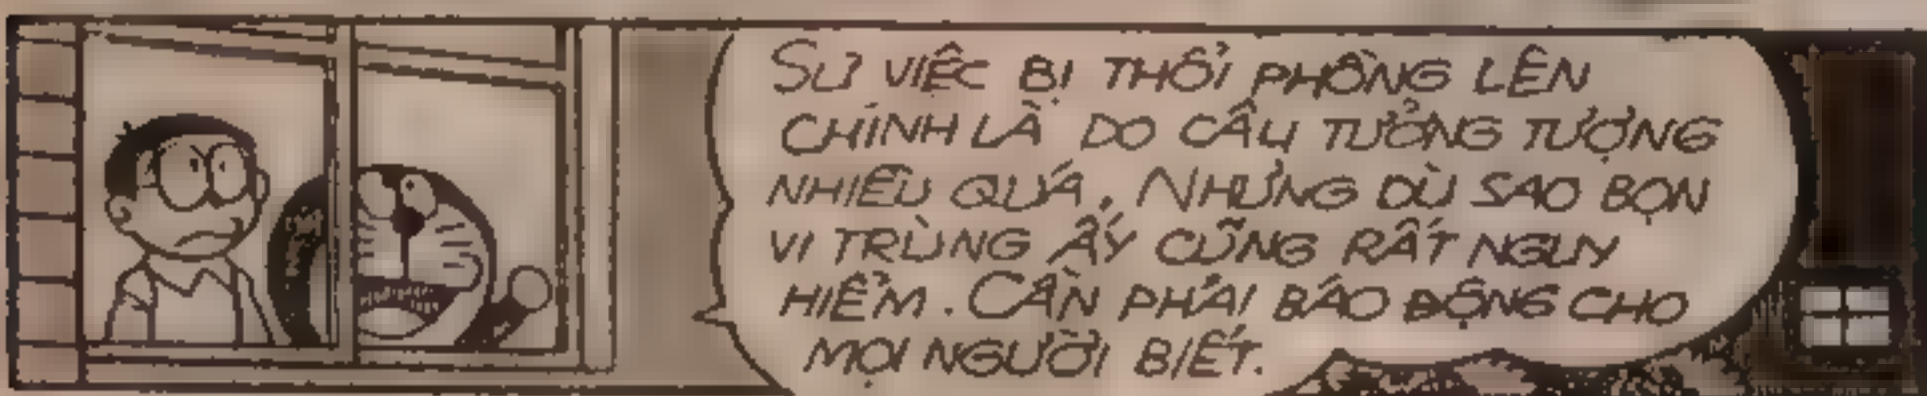 SỰ VIỆC BỊ THỔI PHỒNG LÊN
CHÍNH LÀ DO CẬU TƯỞNG TƯỢNG
NHIỀU QUÁ. NHƯNG DÙ SAO BỌN
VI TRÙNG ẤY CŨNG RẤT NGUY
HIỂM. CẦN PHẢI BÁO ĐỘNG CHO
MỌI NGƯỜI BIẾT.